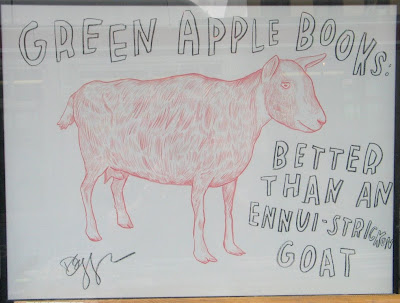 GREEN APPLE BOOKS:
BETTER
THAN AN
ENNUI-STRICKEN
GOAT